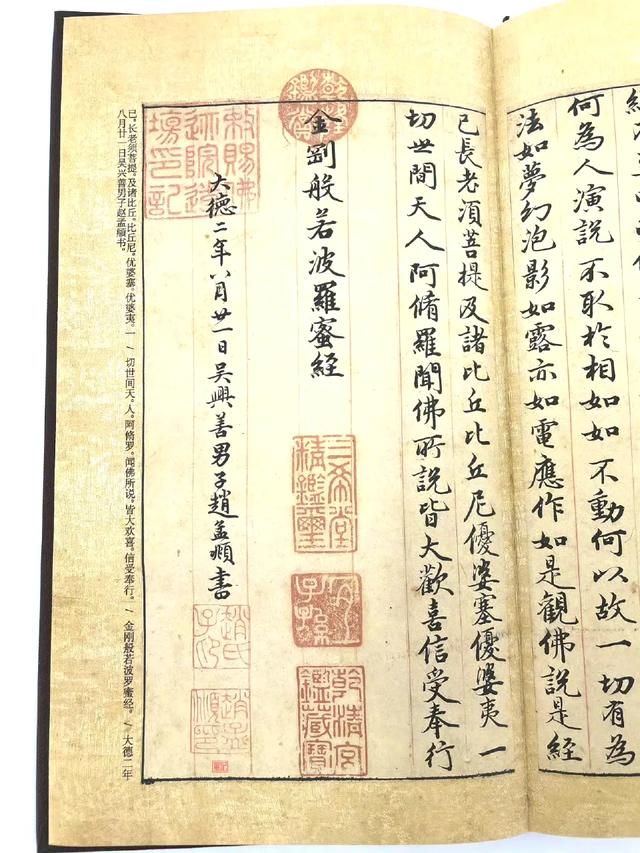 何為人演說不取於相如如不動何以故一切有為
法如夢幻泡影如露亦如電應作如是觀佛說是經
已長老須菩提及諸比丘比丘尼優婆塞優婆夷一
切世間天人阿脩羅聞佛所說皆大歡喜信受奉行
乾隆鑑賞
金剛般若波羅蜜經
三希堂
精鑑璽
宜
子孫
乾清宮
鑑藏寶
敕賜佛
迹院道
場印記
大德二年八月廿一日吳興善男子趙孟頫書
趙氏
子昂
趙孟
頫印
已。长老须菩提。及诸比丘。比丘尼。优婆塞。优婆夷。一 / 切世间天。人。阿脩罗。闻佛所说。皆大欢喜。信受奉行。/ 金刚般若波罗蜜经。/ 大德二年
八月廿一日吴兴善男子赵孟頫书。